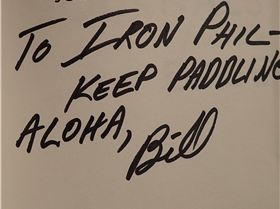 TO IRON PHIL-
KEEP PADDLING
ALOHA,
Bill